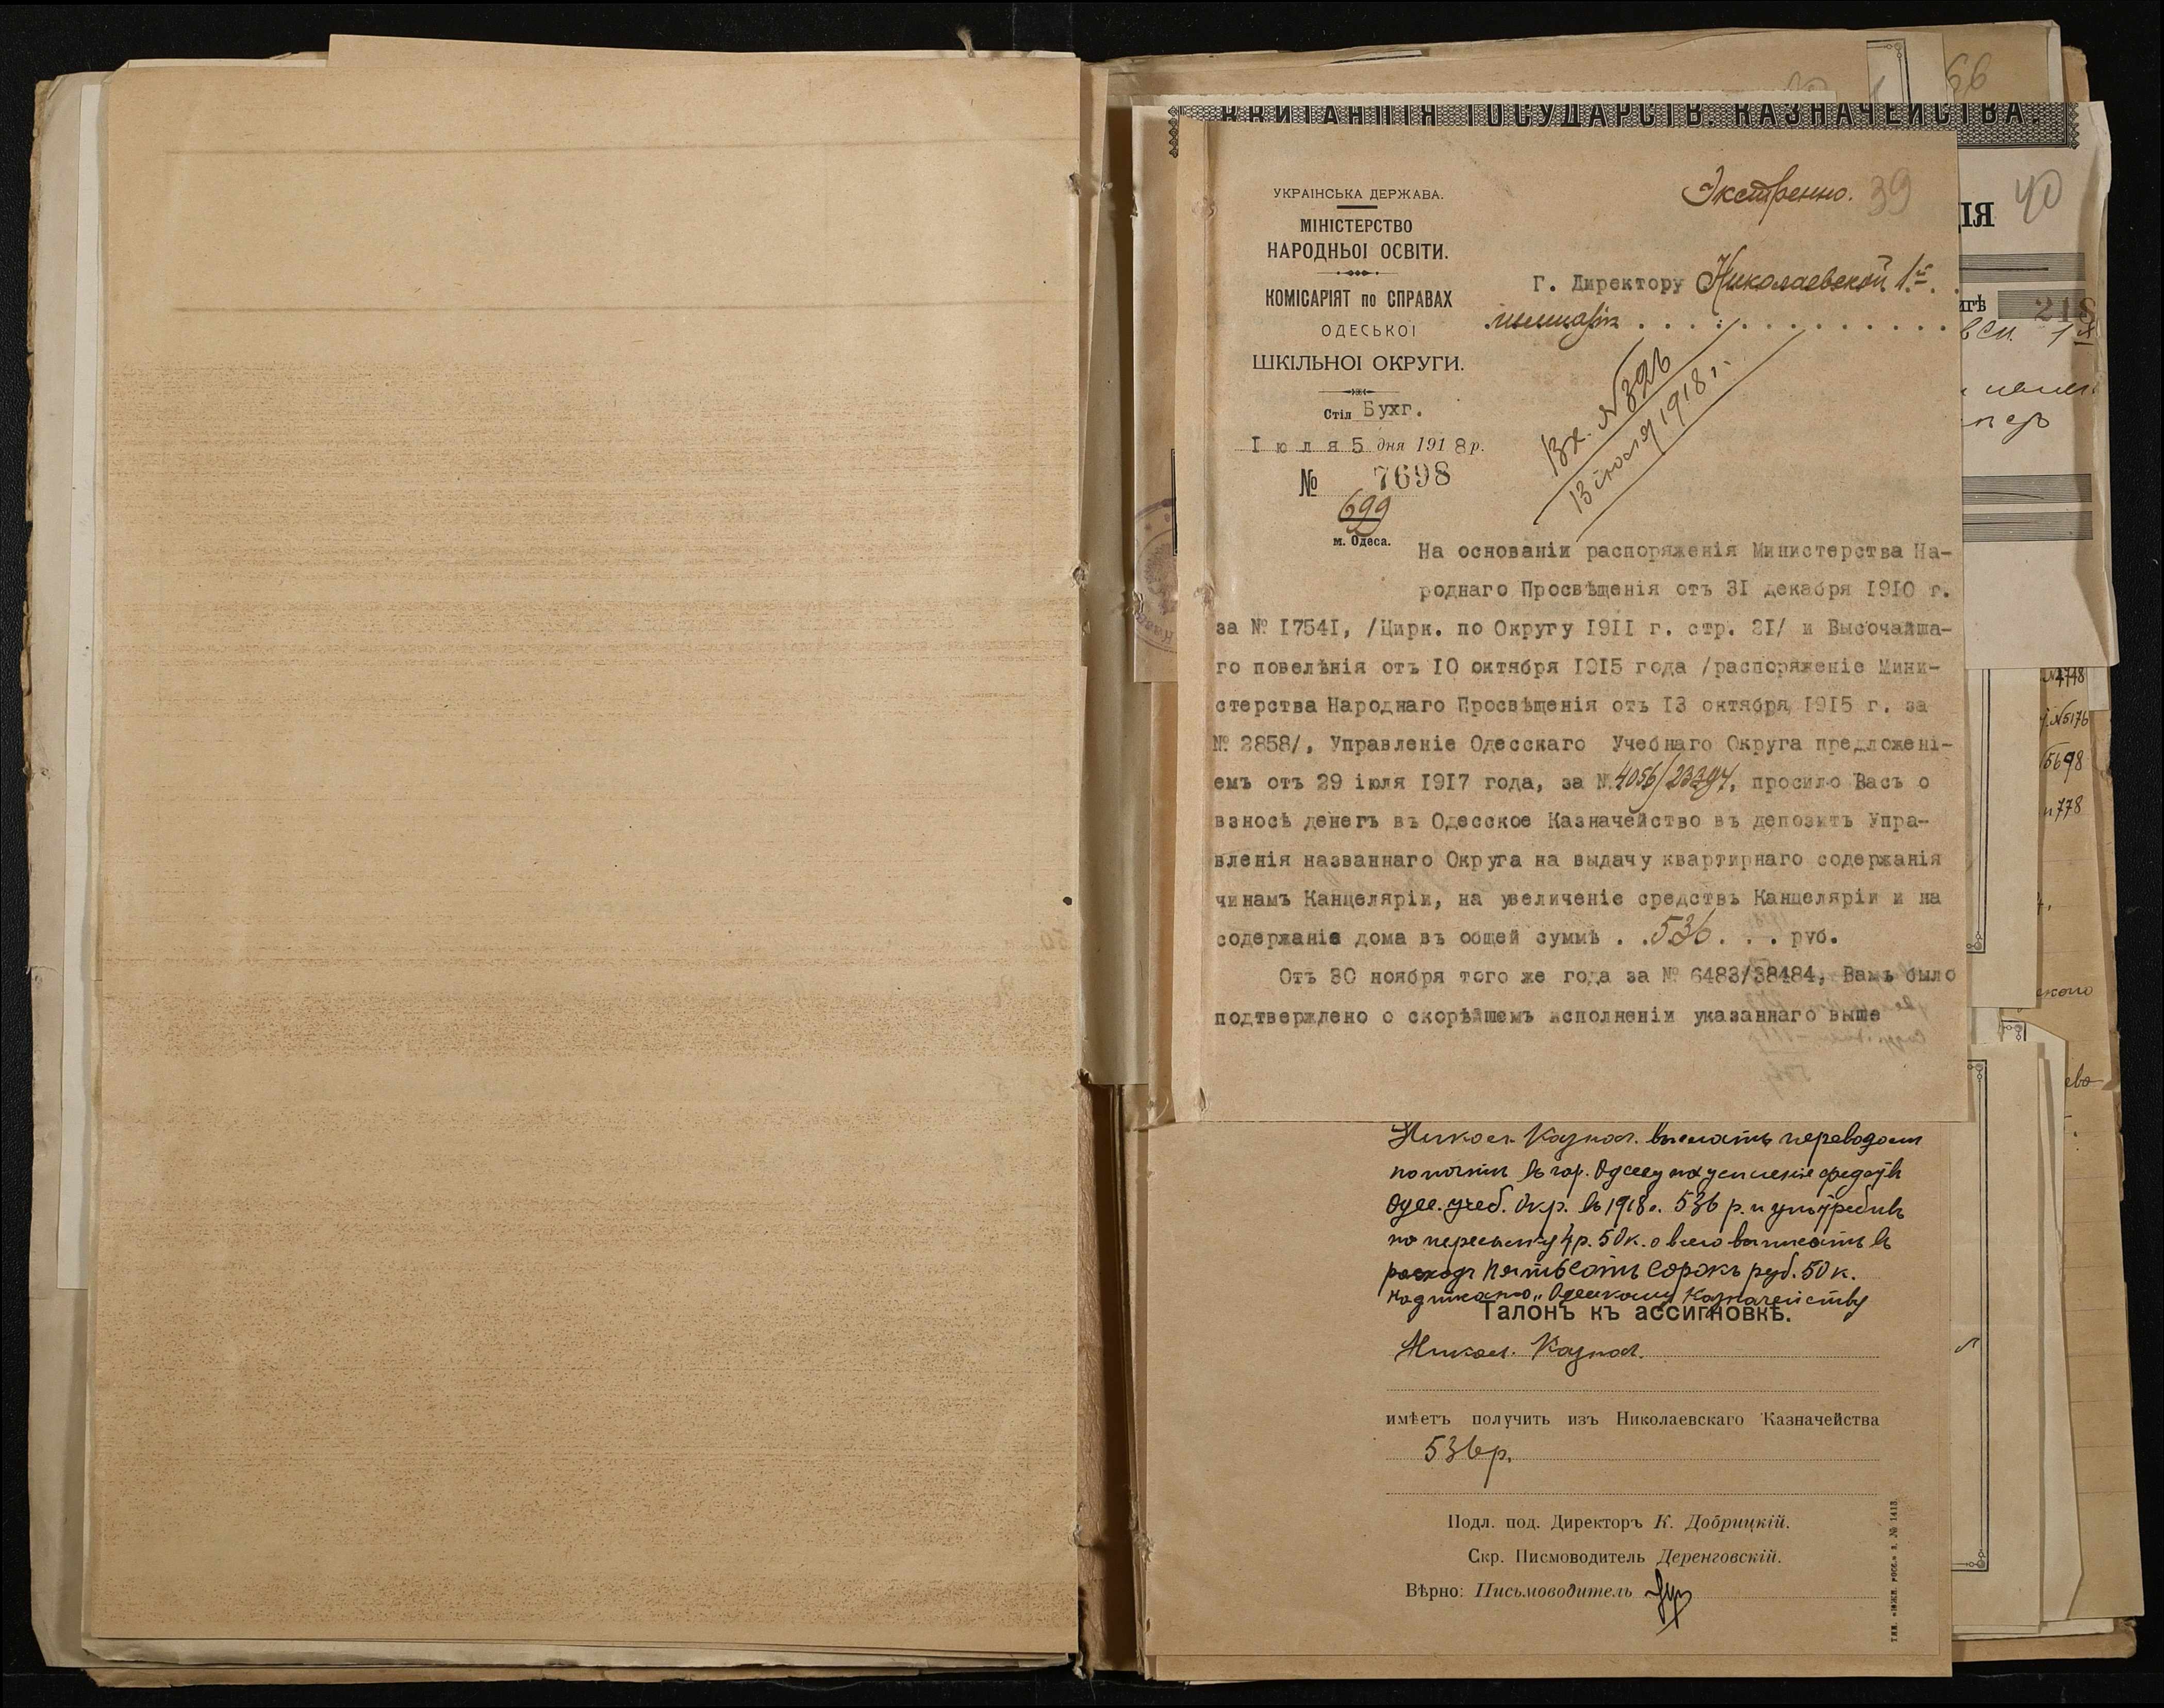 66
КВИТАНЦІЯ ГОСУДАРСТВ. КАЗНАЧЕЙСТВА.
УКРАІНСЬКА ДЕРЖАВА.
МІНІСТЕРСТВО
НАРОДНЬОІ ОСВІТИ.
КОМІСАРІЯТ по СПРАВАХ
ОДЕСЬКОІ
ШКІЛЬНОІ ОКРУГИ.
Стіл Бухг.
Іюля 5 дня 1918 р.
№ 7698
699
м. Одеса.
Экстренно. 39
Г. Директору Николаевской 1-й
гимназіи
Вх. № 326
13 іюля 1918 г.
На основаніи распоряженія Министерства На-
роднаго Просвѣщенія отъ 31 декабря 1910 г.
за № 17541, /Цирк. по Округу 1911 г. стр. 21/ и Высочайша-
го повелѣнія отъ 10 октября 1915 года /распоряженіе Мини-
стерства Народнаго Просвѣщенія отъ 13 октября 1915 г. за
№ 2858/, Управленіе Одесскаго Учебнаго Округа предложені-
емъ отъ 29 іюля 1917 года, за № 4056/23394, просило Васъ о
взносѣ денегъ въ Одесское Казначейство въ депозитъ Упра-
вленія названнаго Округа на выдачу квартирнаго содержанія
чинамъ Канцеляріи, на увеличеніе средствъ Канцеляріи и на
содержаніе дома въ общей суммѣ . . 536 . . . руб.
Отъ 30 ноября того же года за № 6483/38484, Вамъ было
подтверждено о скорѣйшемъ исполненіи указаннаго выше
Никол. Казнач. выслать переводом
по почте въ гор. Одессу на усиленіе средств
Одес. учеб. Окр. въ 1918 г. 536 р. и употребивъ
на пересылку 4 р. 50 к. а всего выписать въ
расходъ пятьсотъ сорокъ руб. 50 к.
Одесскому Казначейству
Талонъ къ ассигновкѣ.
Никол. Казнач.
имѣетъ получить изъ Николаевскаго Казначейства
536 р.
Подл. под. Директоръ К. Добрицкій.
Скр. Писмоводитель Деренговскій.
Вѣрно: Письмоводитель
ТИП. «ЮЖН. РОСС.» З. № 1413.
ІЯ 40
218
№4748
№5176
5698
778